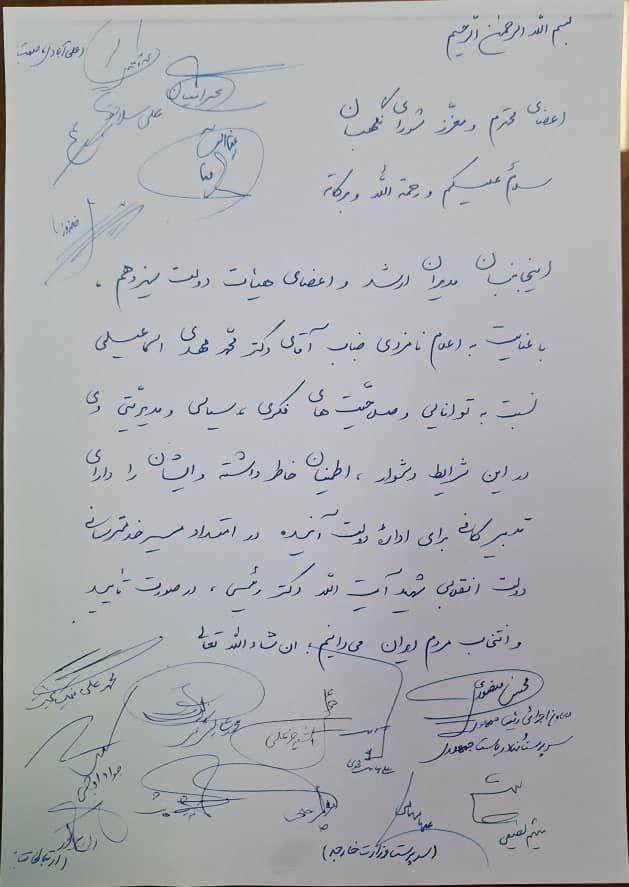 بسم الله الرحمن الرحیم
اعضای محترم و معزز شورای نگهبان
سلامٌ علیکم و رحمة الله و برکاته
اینجانبان مدیران ارشد و اعضای هیأت دولت سیزدهم،
با عنایت به اعلام نامزدی جناب آقای دکتر محمّد مهدی اسماعیلی
نسبت به توانایی و صلاحیّت‌های فکری، سیاسی و مدیریّتی وی
در این شرایط دشوار، اطمینان خاطر داشته و ایشان را دارای
تدبیر کافی برای ادارهٔ دولت آینده در امتداد مسیر خدمترسانی
دولت انقلابی شهید آیت الله دکتر رئیسی، در صورت تأیید
و انتخاب مردم ایران می‌دانیم. ان شاء الله تعالی
محسن منصوری
معاون اجرائی رئیس جمهور
سرپرست نهاد ریاست جمهوری
میثم لطیفی
(سرپرست وزارت خارجه)
(ارتباطات)